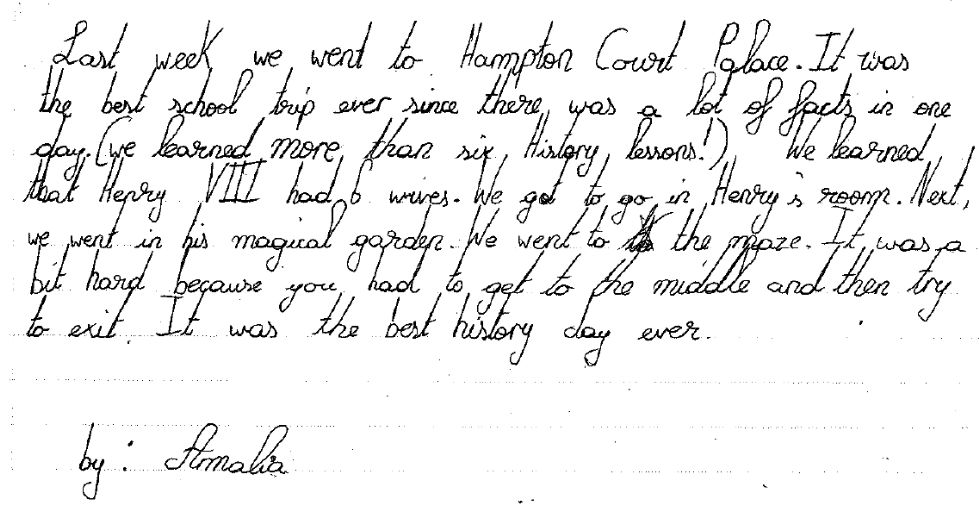 Last week we went to Hampton Court Palace. It was
the best school trip ever since there was a lot of facts in one
day. (we learned more than six History lessons!) We learned
that Henry VIII had 6 wives. We got to go in Henry's room. Next,
we went in his magical garden. We went to the maze. It was a
bit hard because you had to get to the middle and then try
to exit. It was the best history day ever.
by: Amalia